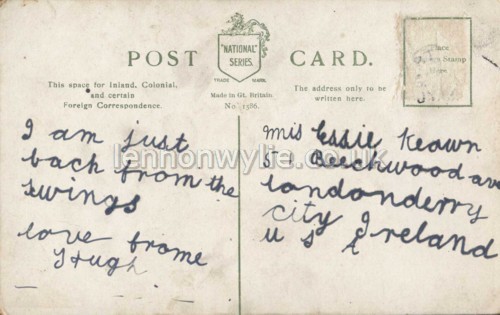 POST CARD.
"NATIONAL" SERIES
TRADE MARK
Made in Gt. Britain.
No. 1586.
This space for Inland, Colonial,
and certain
Foreign Correspondence.
The address only to be
written here.
Place
Stamp
Here
I am just
back from the
swings
love frome
Hugh
Mis Essie Keown
51 Beechwood ave
londonderry
city Ireland
u s
lennonwylie.co.uk